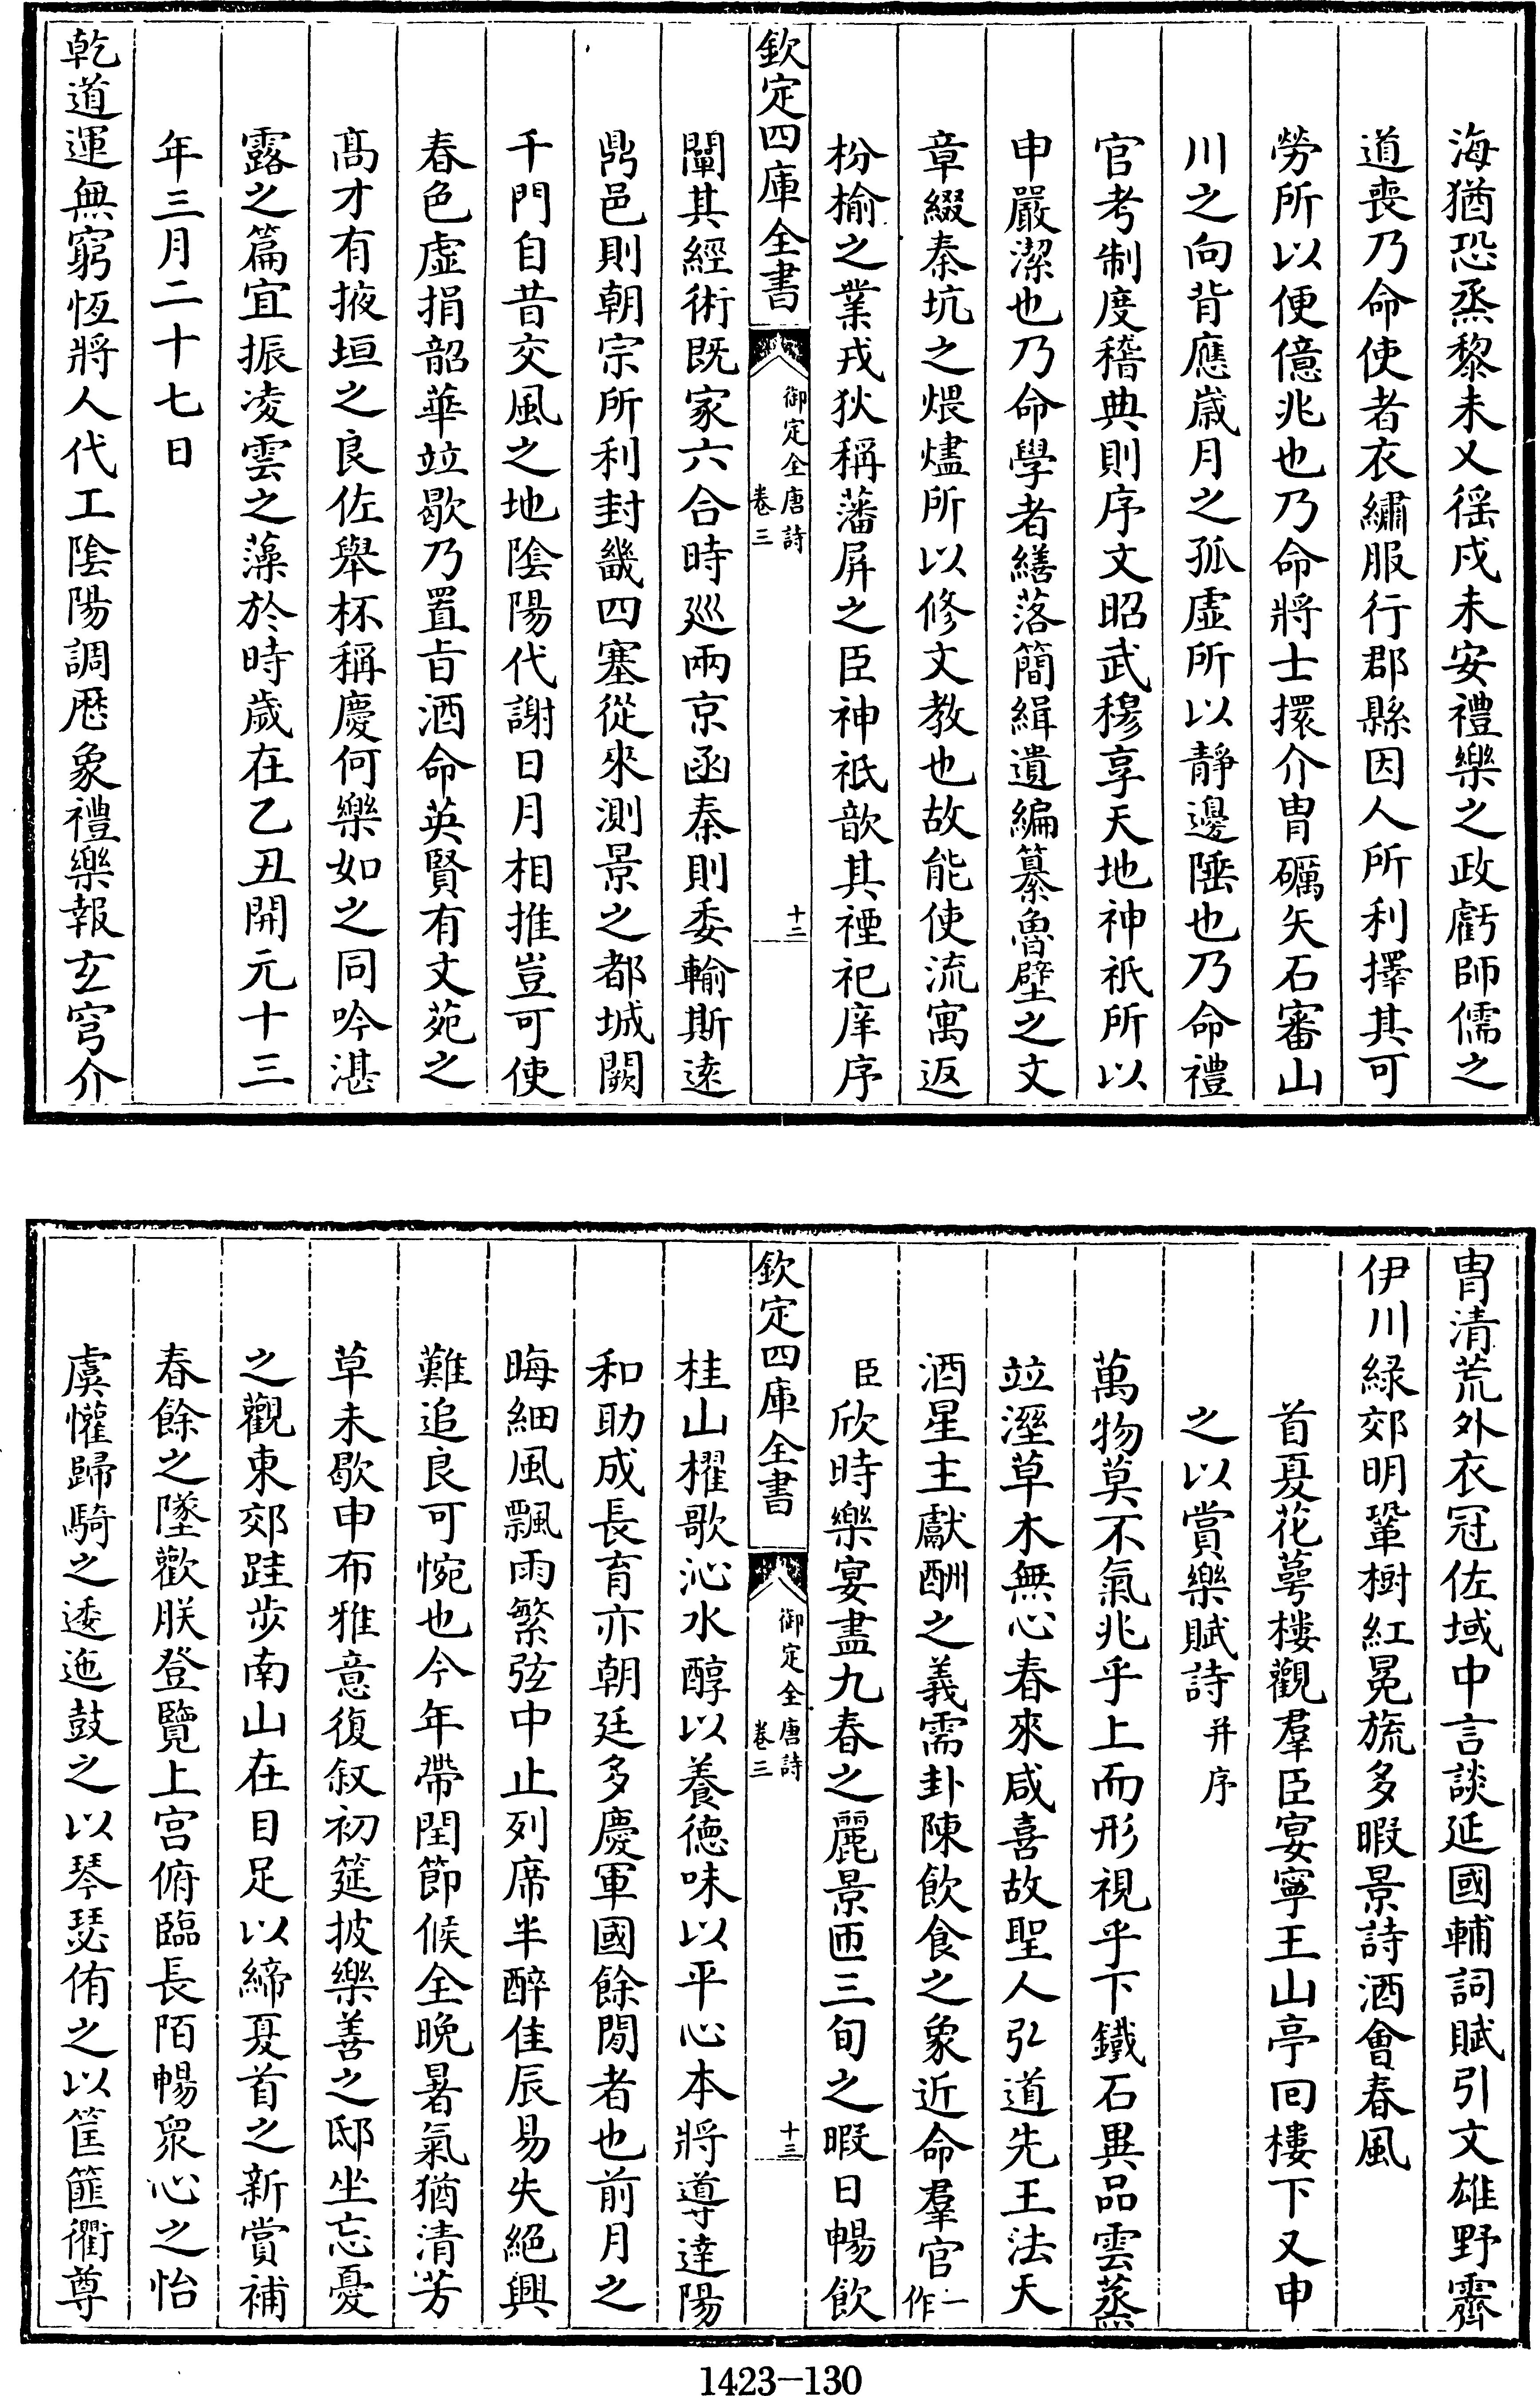 海猶恐烝黎未乂徭戍未安禮樂之政虧師儒之
道喪乃命使者衣繡服行郡縣因人所利擇其可
勞所以便億兆也乃命將士擐介胄礪矢石審山
川之向背應嵗月之孤虛所以靜邊陲也乃命禮
官考制度稽典則序文昭武穆享天地神祇所以
申嚴潔也乃命學者繕落簡緝遺編纂魯壁之文
章綴秦坑之煨燼所以修文教也故能使流寓返
枌榆之業戎狄稱藩屏之臣神祇歆其禋祀庠序
欽定四庫全書 御定全唐詩 卷三 十二
闡其經術既家六合時廵兩京函秦則委輸斯逺
鼎邑則朝宗所利封畿四塞從來測景之都城闕
千門自昔交風之地隂陽代謝日月相推豈可使
春色虛捐韶華竝歇乃置㫖酒命英賢有文苑之
髙才有掖垣之良佐舉杯稱慶何樂如之同吟湛
露之篇宜振凌雲之藻於時歲在乙丑開元十三
年三月二十七日
乾道運無窮恆將人代工隂陽調厯象禮樂報𤣥穹介
胄清荒外衣冠佐域中言談延國輔詞賦引文雄野霽
伊川緑郊明鞏樹紅冕旒多暇景詩酒會春風
首夏花萼樓觀羣臣宴寧王山亭回樓下又申
之以賞樂賦詩并序
萬物莫不氣兆乎上而形視乎下鐵石異品雲蒸
竝溼草木無心春來咸喜故聖人弘道先王法天
酒星主獻酬之義需卦陳飲食之象近命羣官一作
臣欣時樂宴盡九春之麗景匝三旬之暇日暢飲
欽定四庫全書 御定全唐詩 卷三 十三
桂山櫂歌沁水醇以養德味以平心本將導達陽
和助成長育亦朝廷多慶軍國餘閒者也前月之
晦細風飄雨繁弦中止列席半醉佳辰易失絕興
難追良可惋也今年帶閏節候全晚暑氣猶清芳
草未歇申布雅意復叙初筵披樂善之邸坐忘憂
之觀東郊跬步南山在目足以締夏首之新賞補
春餘之墜歡朕登覽上宫俯臨長陌暢衆心之怡
虞懽歸騎之逶迤鼓之以琴瑟侑之以筐篚衢尊
1423—130